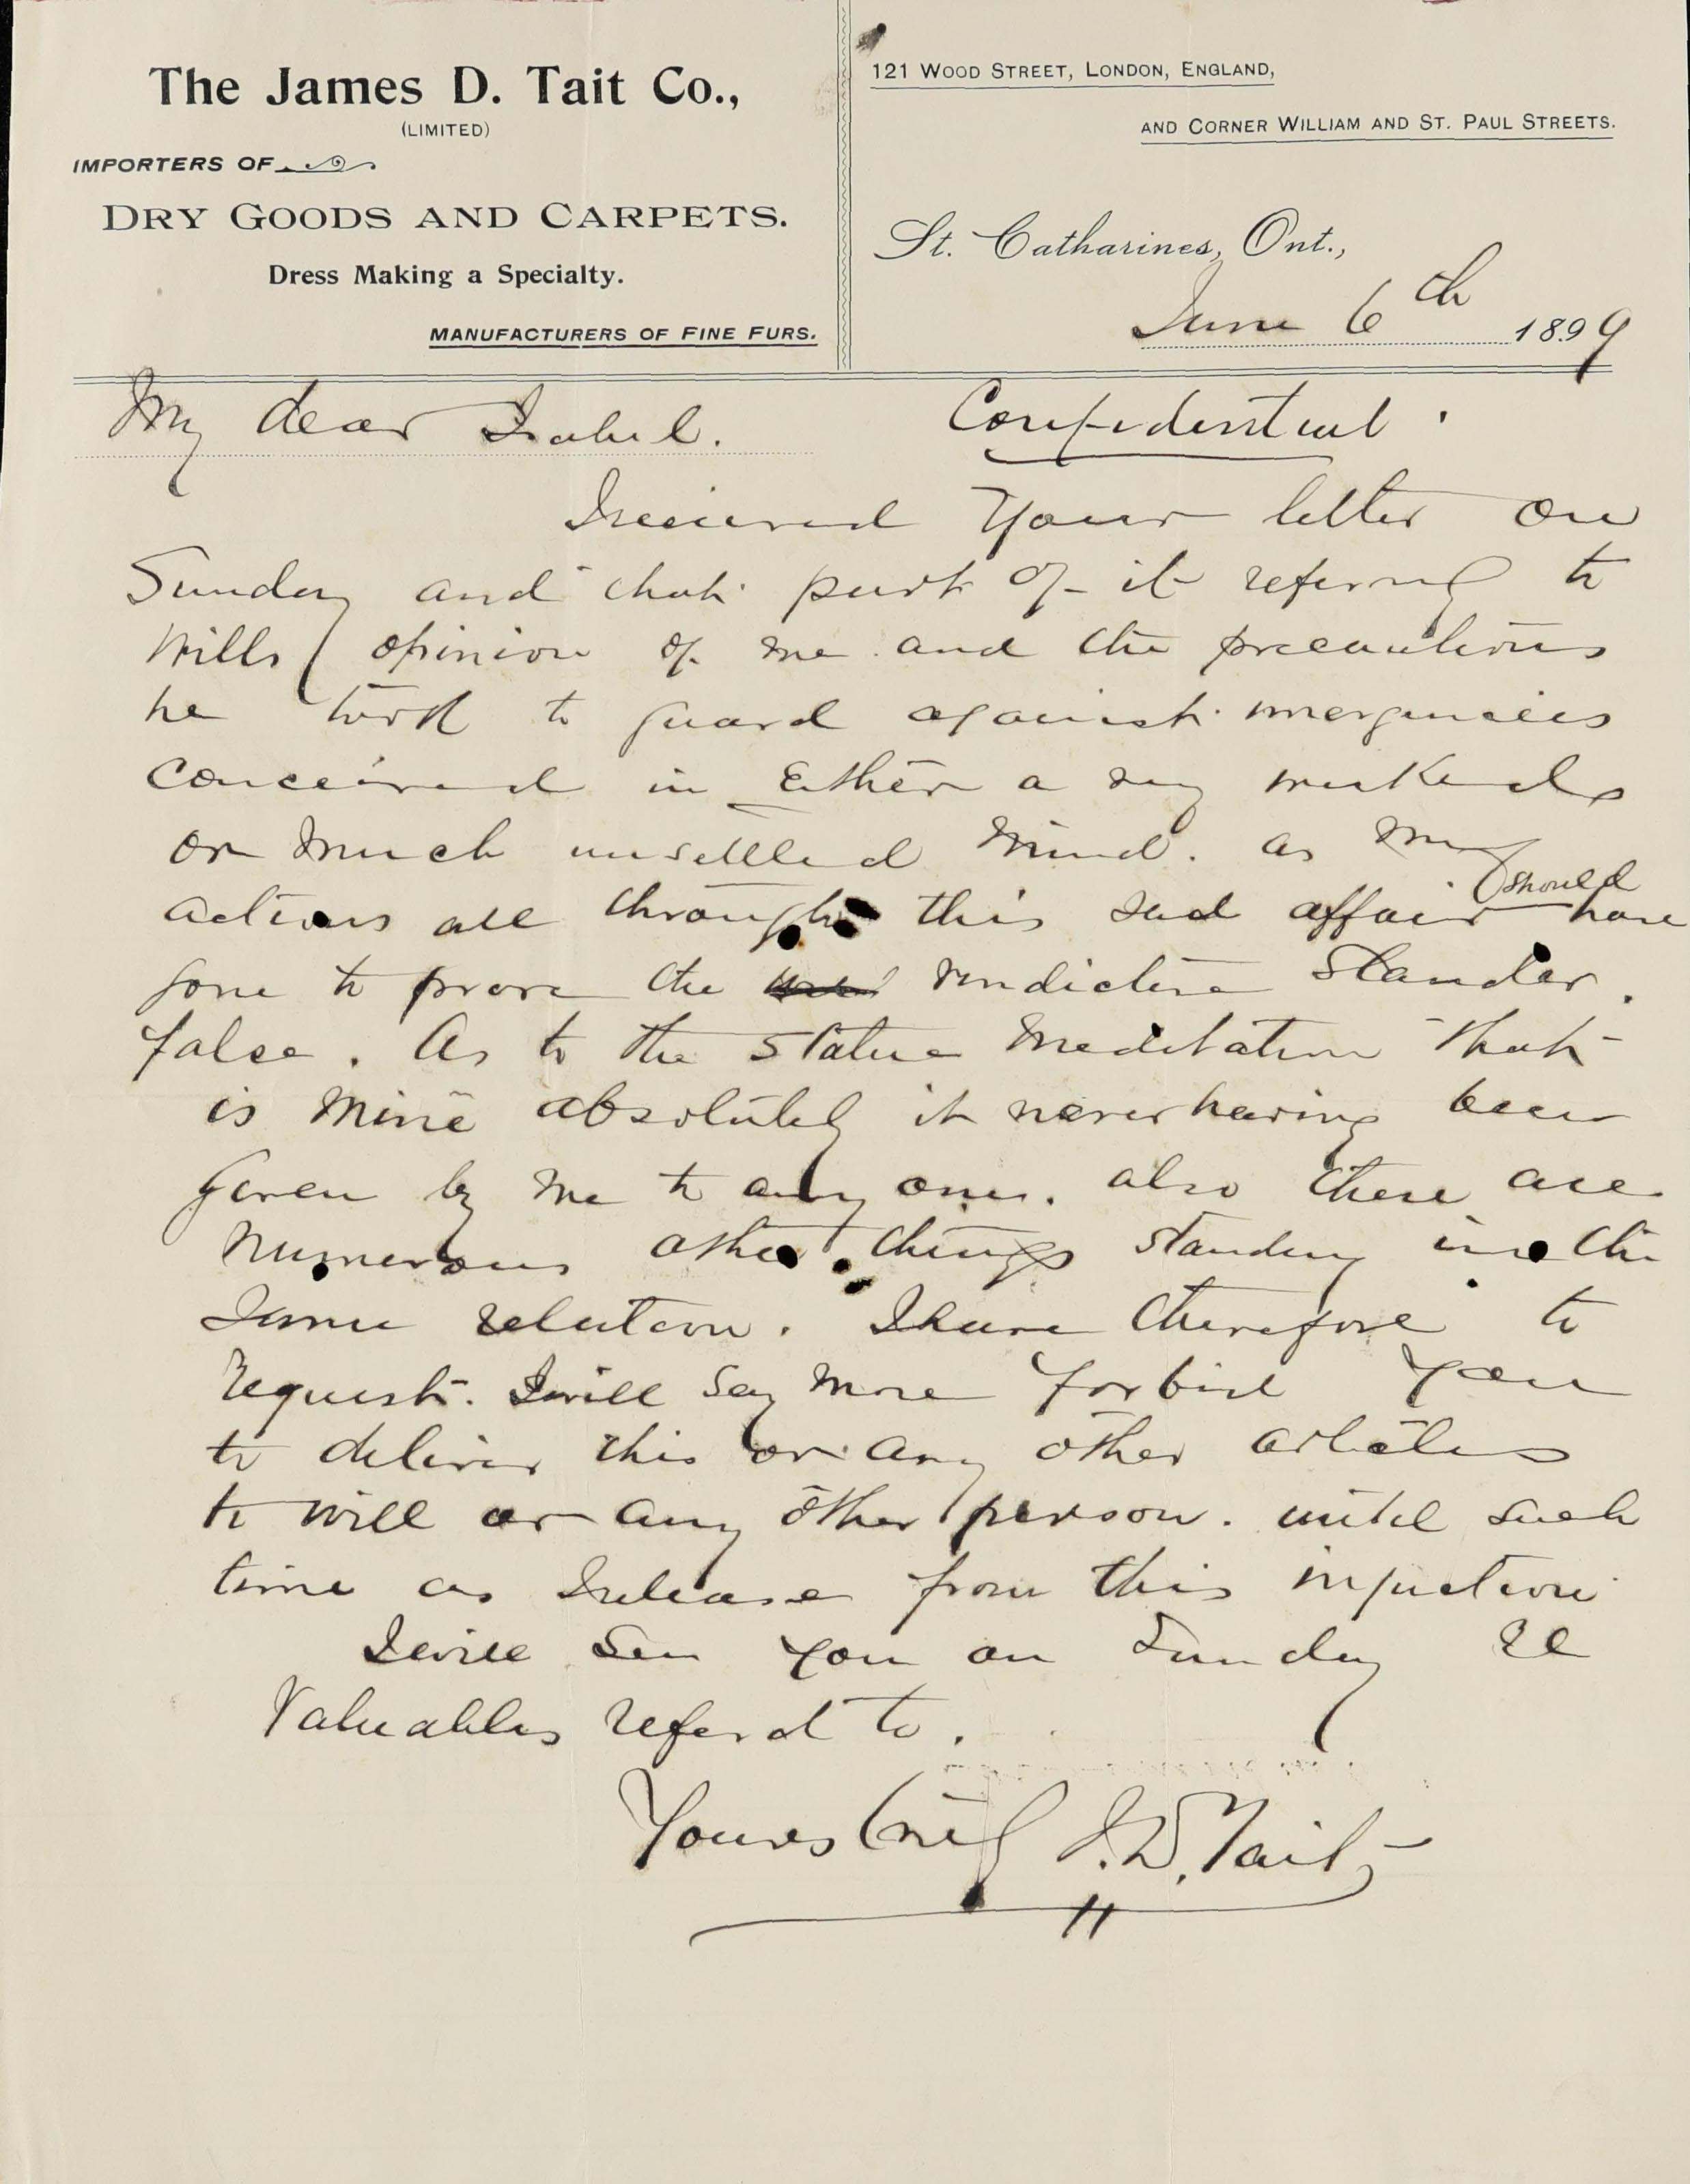 The James D. Tait Co.,
(LIMITED)
IMPORTERS OF
DRY GOODS AND CARPETS.
Dress Making a Specialty.
MANUFACTURERS OF FINE FURS.
121 WOOD STREET, LONDON, ENGLAND,
AND CORNER WILLIAM AND ST. PAUL STREETS.
St. Catharines, Ont.,
June 6th 1899
My dear Isabel.
Confidential.
I received your letter on
Sunday and that part of it refering to
Wills opinion of me and the precautions
he took to guard against emergencies
conceived in Either a very wicked
or much unsettled mind. as my
actions all through this sad affair should have
gone to prove the vindictive slander.
false. As to the statue Meditation that
is mine absolutely it never having been
given by me to any one. also there are
numerous other things standing in the
same relation. I have therefore to
request. I will say more forbid you
to deliver this or any other articles
to will or any other person. until such
time as I release from this injuction
I will see you on Sunday re
Valuables referd to.
Yours truly J. D. Tait